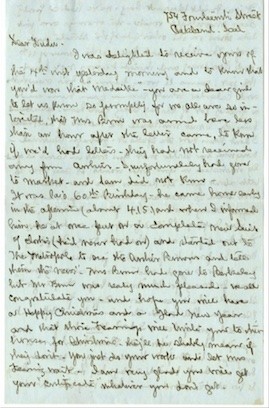 754 Fourteenth Street
Oakland. Cal
I was delighted to receive yours of
the 4th inst yesterday morning, and to know that
you'd won that Medaille - you are a dear girl
to let us know so promptly for we all are so in-
terested, that Mrs. was around here less
than an hour after the letter came, to know
if we'd had letters - they had not received
any from. I unfortunately had gone
to market - and did not know
It was his 60th Birthday - he came home early
in the afternoon (about 4.15) and when I informed
him, he at once put on a complete new suit
of clothes (had never had on) and started out to
the Metropole to see the and tell
them the news. Mrs. had gone to Berkeley
but Mr was really much pleased. We all
congratulate you - and hope you will have
a Happy Christmas and a Glad New Year
and that the will invite you to their
house for Christmas. They'll be shabby mean if
they don't. You just do your work and let Mrs.
wait - I am very glad you will get
your Certificate whatever you don't get.